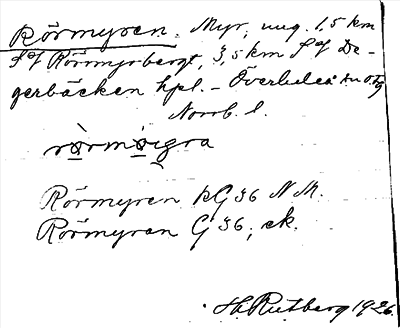 Rörmyren. Myr, ung. 1,5 km
S of Rörmyrberget, 3,5 km S of De-
gerbäcken hpl. – Överluleå sn
Norrb. l.
Rörmyren kG36 N.M.
Rörmyran G36, ek.
H. Rutberg 1926.